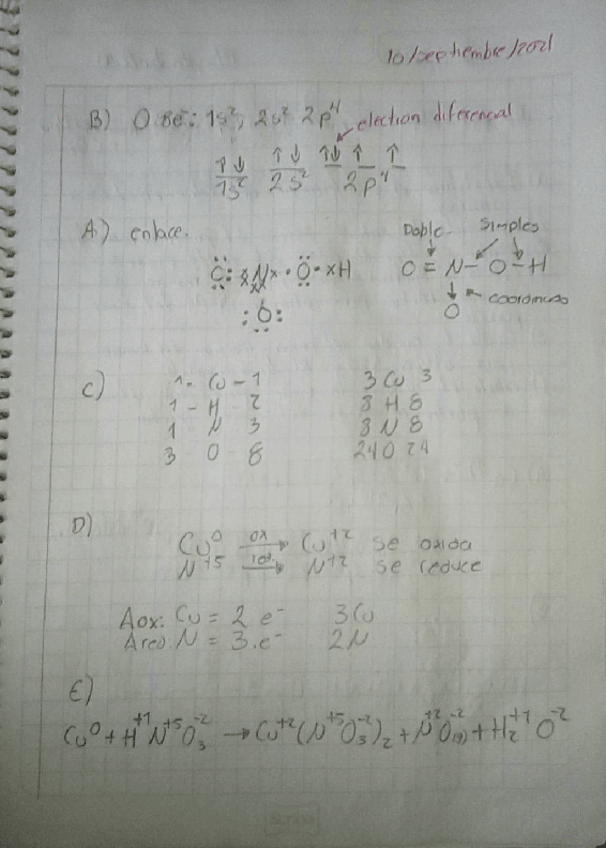 10/septiembre/2021
B) O 8e⁻: 1s², 2s² 2p⁴ electron diferencial
↑↓ ↑↓ ↑↓ ↑ ↑
1s² 2s² 2p⁴
A) enlace. Doble Simples
:Ö: xNx · Ö · xH O = N - O - H
:O: O coordinado
C) 1 - Cu - 1 3 Cu 3
1 - H - 2 8 H 8
1 N 3 8 N 8
3 O 8 24 O 24
D)
Cu⁰ ox→ Cu⁺² se oxida
N⁺⁵ red→ N⁺² se reduce
Aox: Cu = 2 e⁻ 3Cu
Ared: N = 3.e⁻ 2N
E)
Cu⁰ + H⁺¹N⁺⁵O₃⁻² → Cu⁺²(N⁺⁵O₃⁻²)₂ + N⁺²O⁻²(g) + H₂⁺¹O⁻²